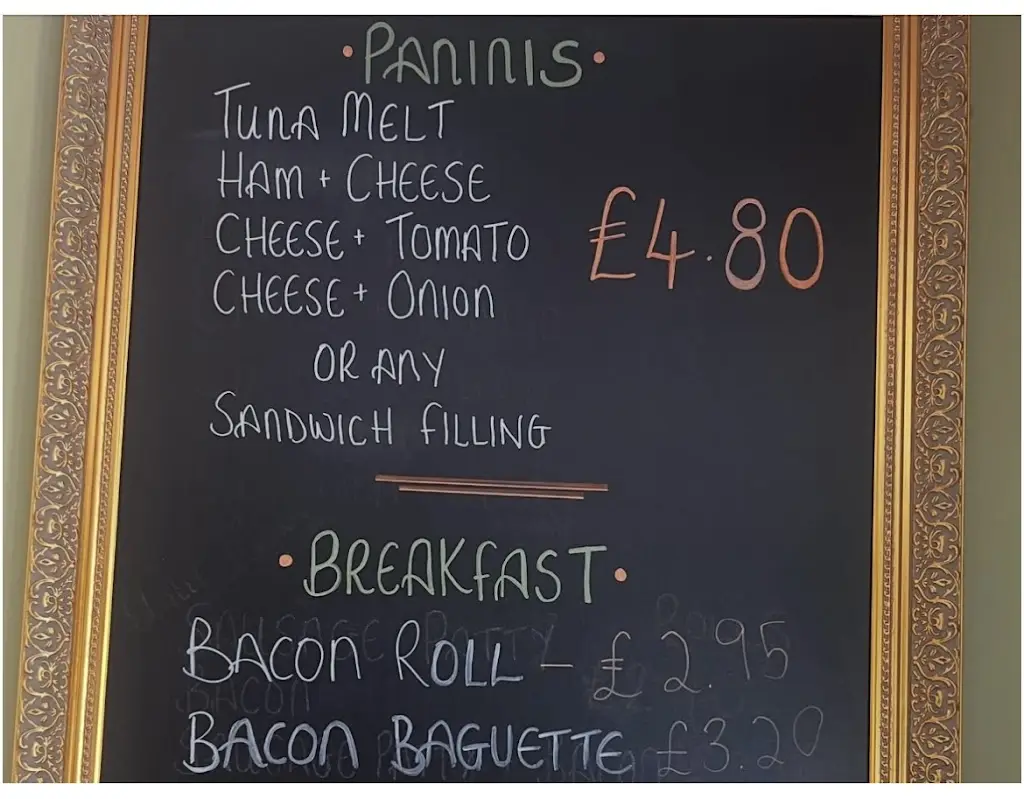 • PANINIS •
TUNA MELT
HAM + CHEESE
CHEESE + TOMATO
CHEESE + ONION
£4.80
OR ANY
SANDWICH FILLING
• BREAKFAST •
BACON ROLL – £2.95
BACON BAGUETTE £3.20